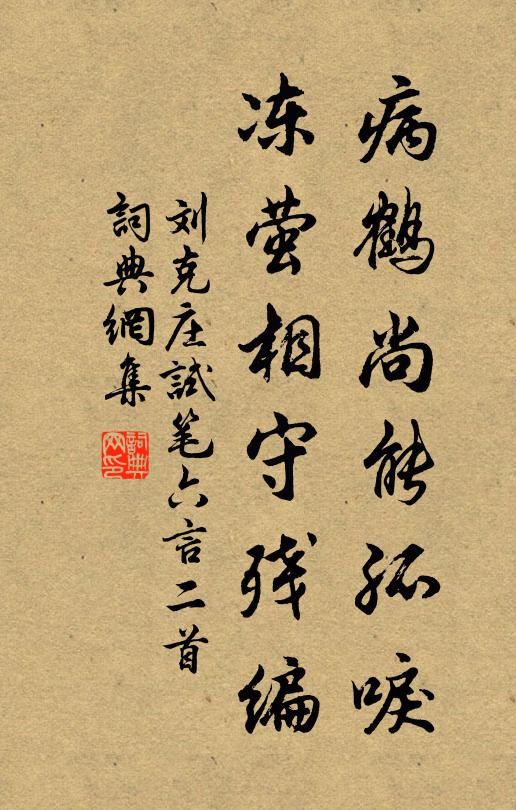 病鹤尚能孤唳
冻萤相守残编
刘克庄试笔六言二首
詞典網集
詞典网印